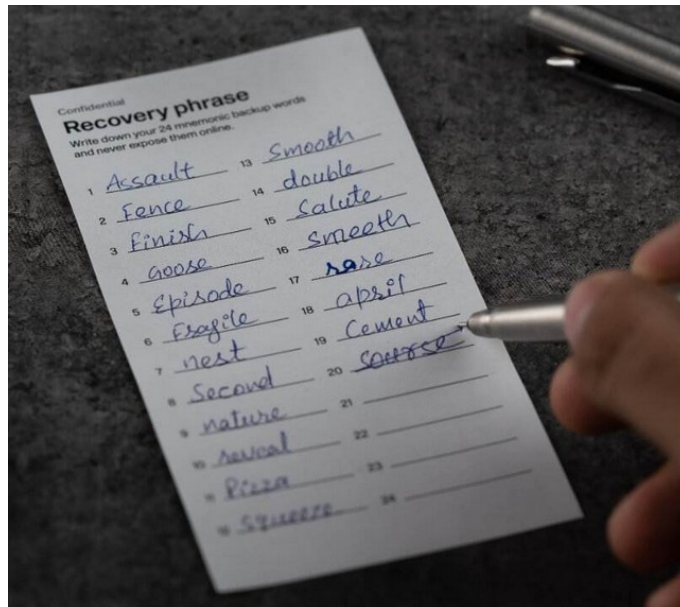 Confidential
Recovery phrase
Write down your 24 mnemonic backup words
and never expose them online.
1 Assault
2 Fence
3 Finish
4 Goose
5 Episode
6 Fragile
7 nest
8 Second
9 nature
10 reveal
11 Pizza
12 squeeze
13 Smooth
14 double
15 Salute
16 smeeth
17 rase
18 april
19 Cement
20
21
22
23
24